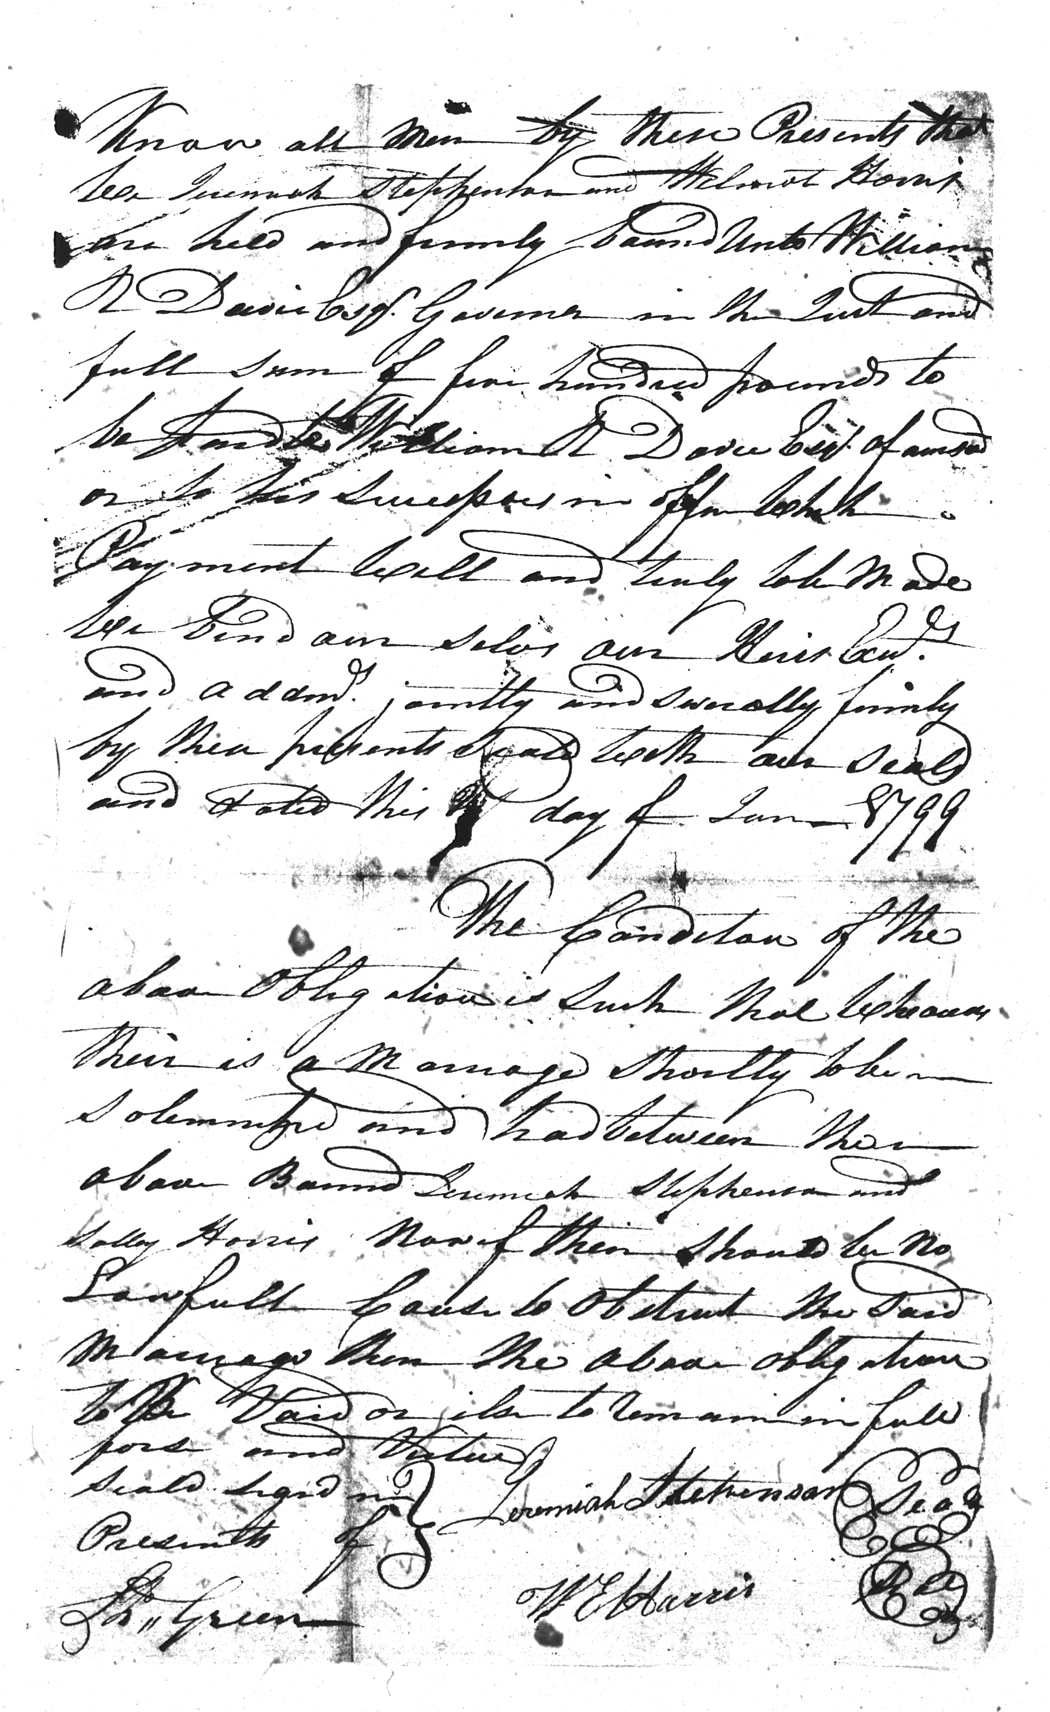 Know all Men by these Presents that
We Jeremiah Stephenson and Wilmot Harris
are held and firmly bound Unto William
R Davie Esqr. Governor in the Just and
full sum of five hundred pounds to
be paid to William R Davie Esqr. afforsaid
or to his Successors in office Which
Payment Well and truly to be Made
We Bind our selves our Heirs Exds.
and addmds. jointly and severally firmly
by these presents Seald With our Seals
and dated this day of Jan 1799
The Condition of the
above Obligation is Such that Whereas
their is a Marriage shortly to be
solemnized and had between the
above Bound Jeremiah Stephenson and
Salley Harris Now if their should be No
Lawfull Cause to Obstruct the said
Marriage then the above obligation
to be Void or else to remain in full
forse and Vertue
Seald Signd in
Presents of
Jeremiah Stephenson Seal
W E Harris
Green